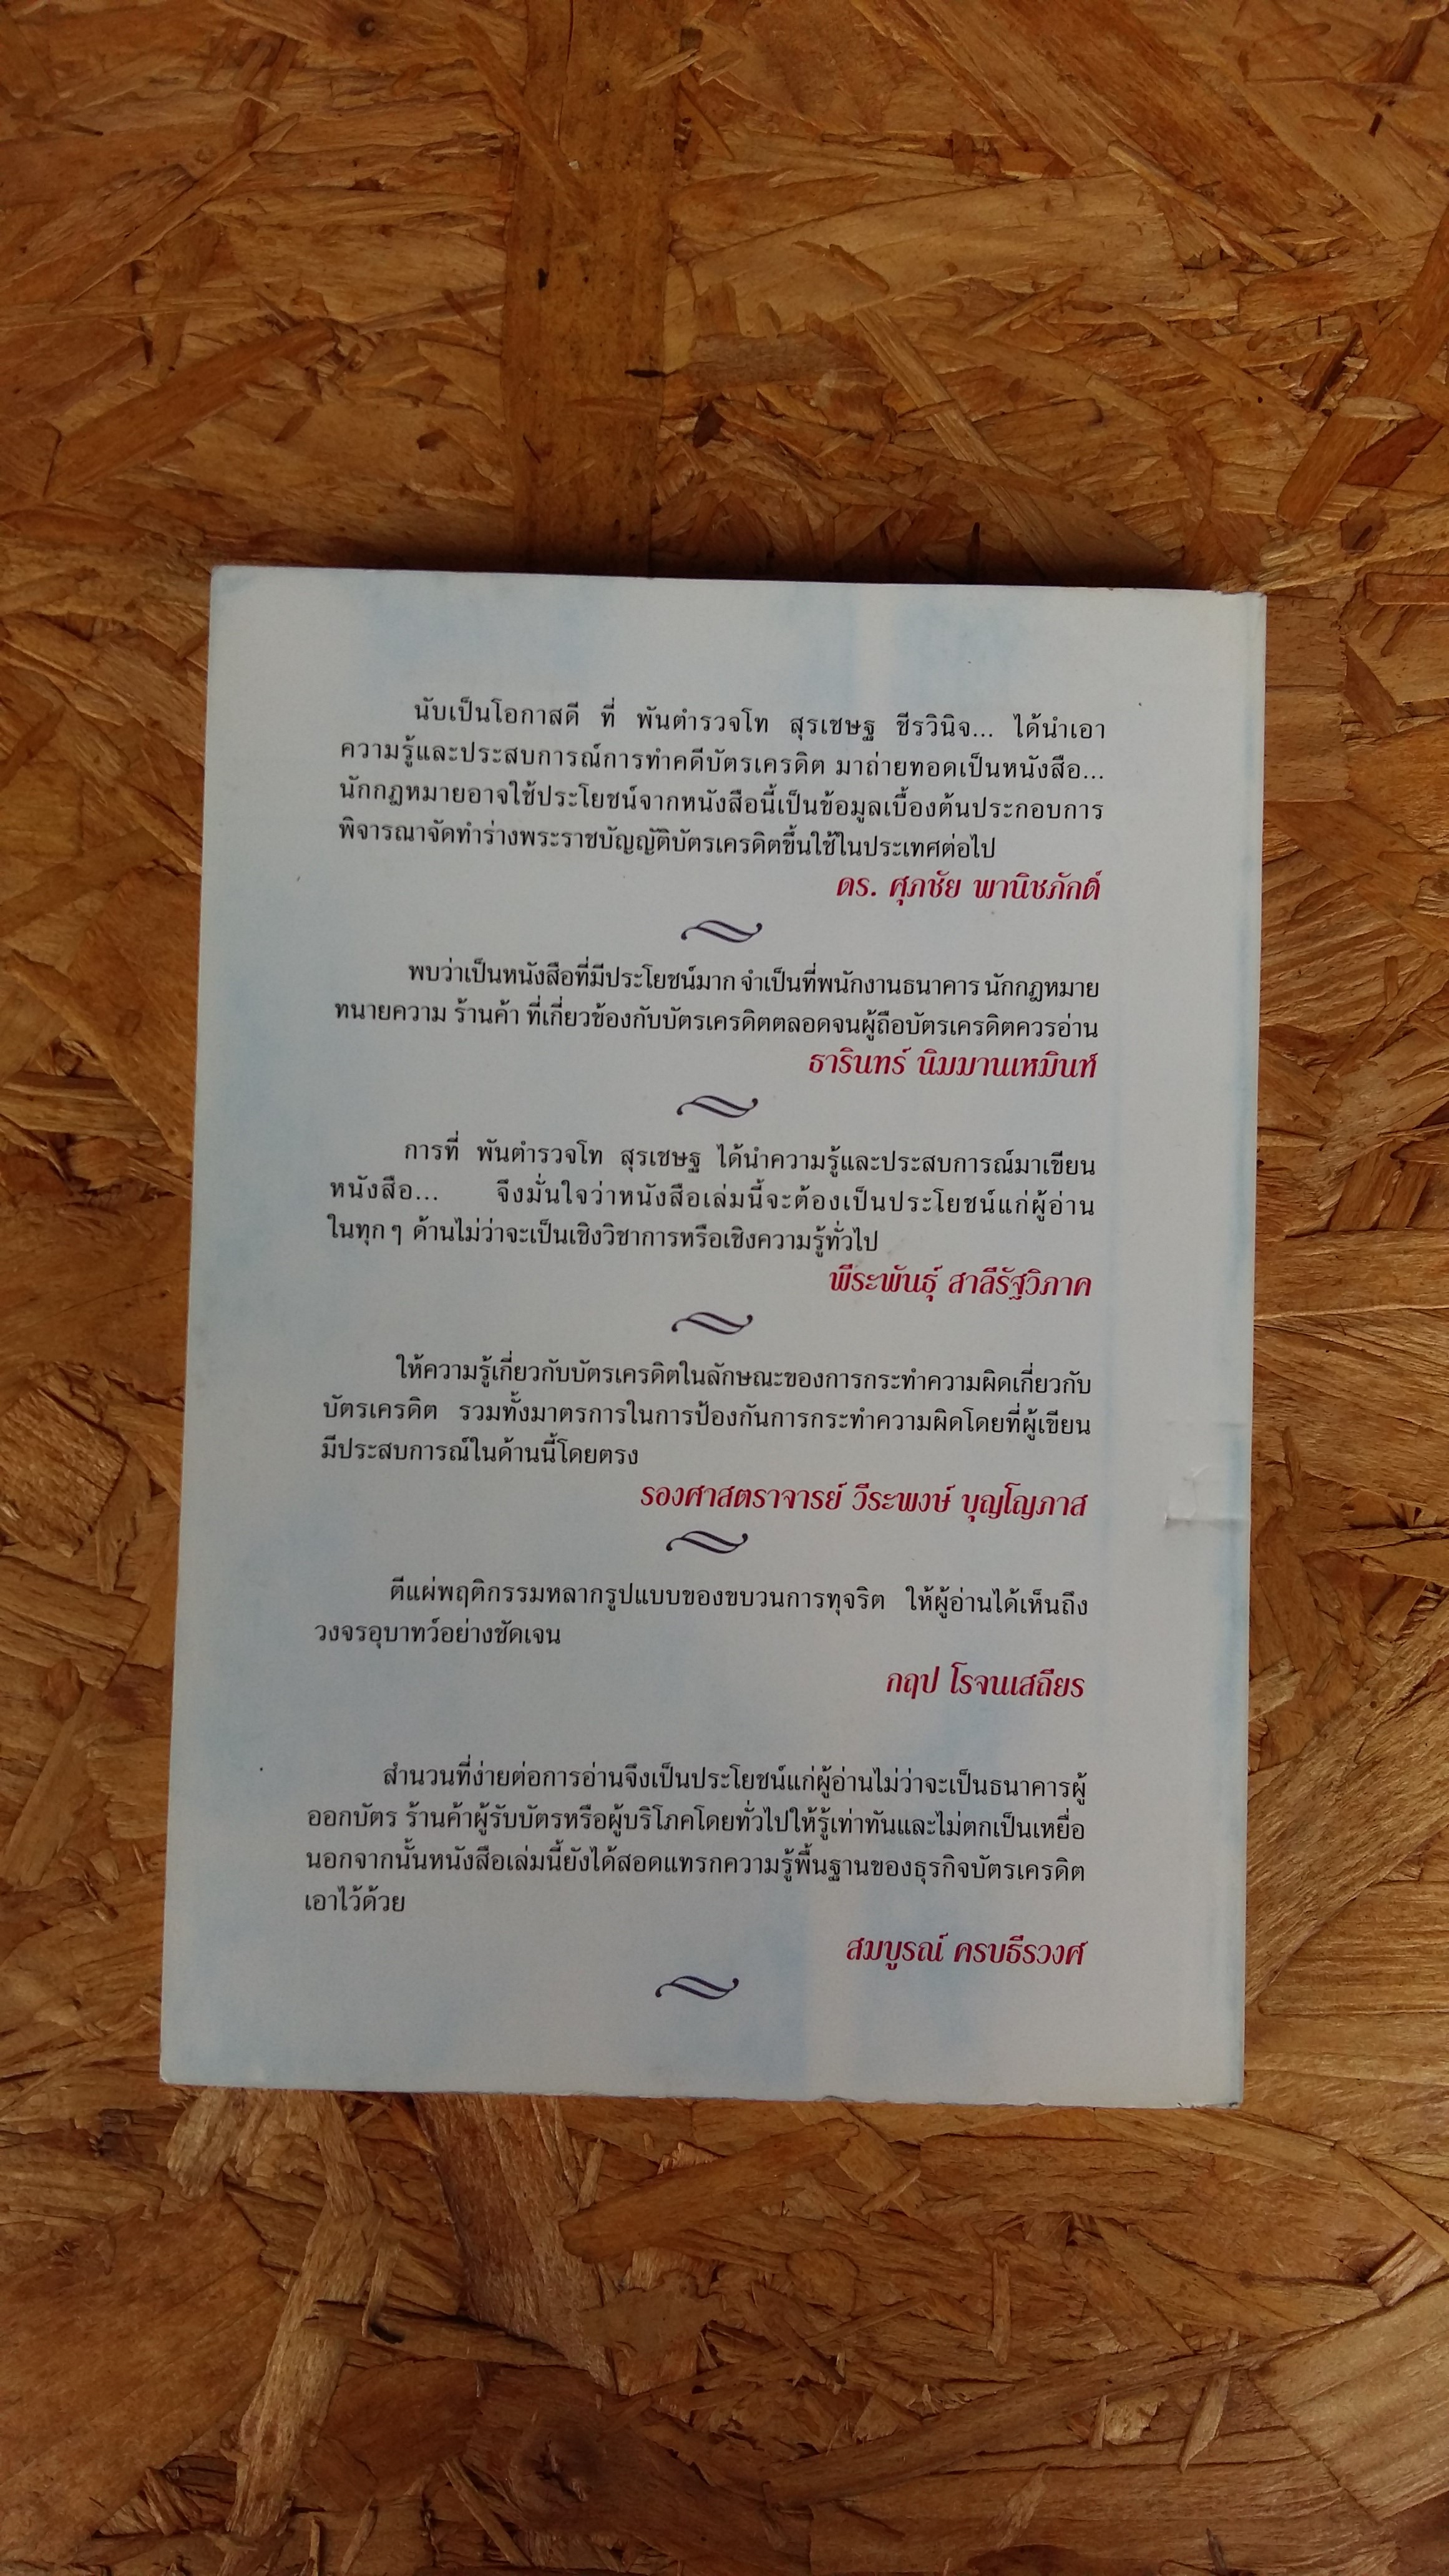 นับเป็นโอกาสดี ที่ พันตำรวจโท สุรเชษฐ ชีรวินิจ... ได้นำเอา
ความรู้และประสบการณ์การทำคดีบัตรเครดิต มาถ่ายทอดเป็นหนังสือ...
นักกฎหมายอาจใช้ประโยชน์จากหนังสือนี้เป็นข้อมูลเบื้องต้นประกอบการ
พิจารณาจัดทำร่างพระราชบัญญัติบัตรเครดิตขึ้นใช้ในประเทศต่อไป
ดร. ศุภชัย พานิชภักดิ์
พบว่าเป็นหนังสือที่มีประโยชน์มาก จำเป็นที่พนักงานธนาคาร นักกฎหมาย
ทนายความ ร้านค้า ที่เกี่ยวข้องกับบัตรเครดิตตลอดจนผู้ถือบัตรเครดิตควรอ่าน
ธารินทร์ นิมมานเหมินท์
การที่ พันตำรวจโท สุรเชษฐ ได้นำความรู้และประสบการณ์มาเขียน
หนังสือ... จึงมั่นใจว่าหนังสือเล่มนี้จะต้องเป็นประโยชน์แก่ผู้อ่าน
ในทุกๆ ด้านไม่ว่าจะเป็นเชิงวิชาการหรือเชิงความรู้ทั่วไป
พีระพันธุ์ สาลีรัฐวิภาค
ให้ความรู้เกี่ยวกับบัตรเครดิตในลักษณะของการกระทำความผิดเกี่ยวกับ
บัตรเครดิต รวมทั้งมาตรการในการป้องกันการกระทำความผิดโดยที่ผู้เขียน
มีประสบการณ์ในด้านนี้โดยตรง
รองศาสตราจารย์ วีระพงษ์ บุญโญภาส
ตีแผ่พฤติกรรมหลากรูปแบบของขบวนการทุจริต ให้ผู้อ่านได้เห็นถึง
วงจรอุบาทว์อย่างชัดเจน
กฤป โรจนเสถียร
สำนวนที่ง่ายต่อการอ่านจึงเป็นประโยชน์แก่ผู้อ่านไม่ว่าจะเป็นธนาคารผู้
ออกบัตร ร้านค้าผู้รับบัตรหรือผู้บริโภคโดยทั่วไปให้รู้เท่าทันและไม่ตกเป็นเหยื่อ
นอกจากนั้นหนังสือเล่มนี้ยังได้สอดแทรกความรู้พื้นฐานของธุรกิจบัตรเครดิต
เอาไว้ด้วย
สมบูรณ์ ครบธีรวงศ์